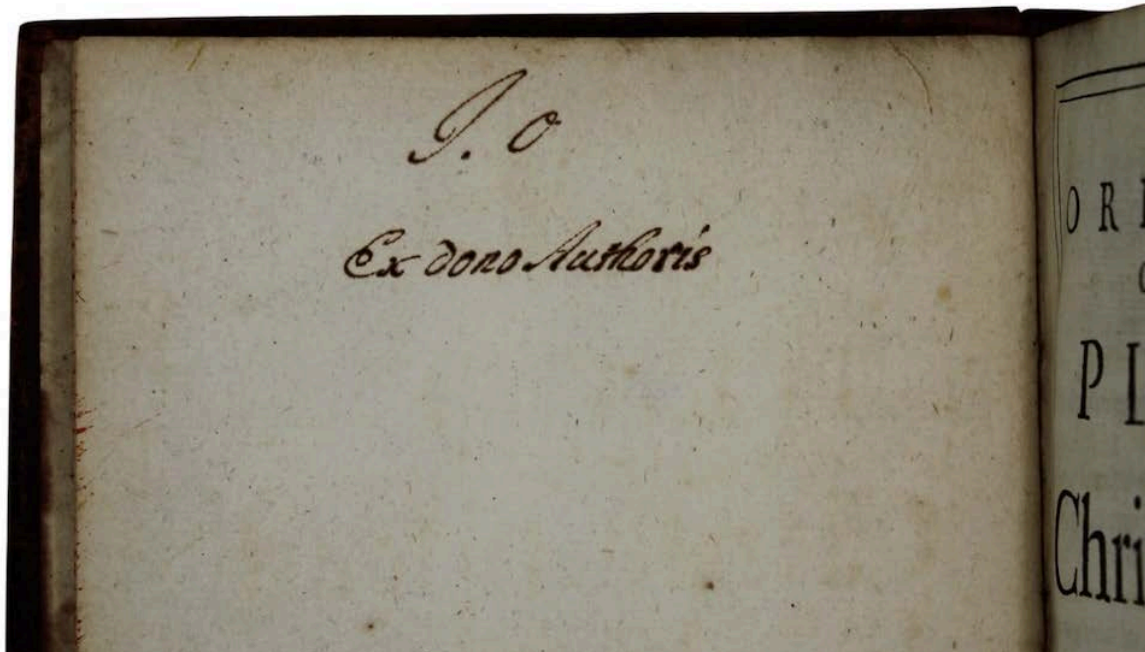 J. O
Ex dono Authoris
OR
PL
Chri